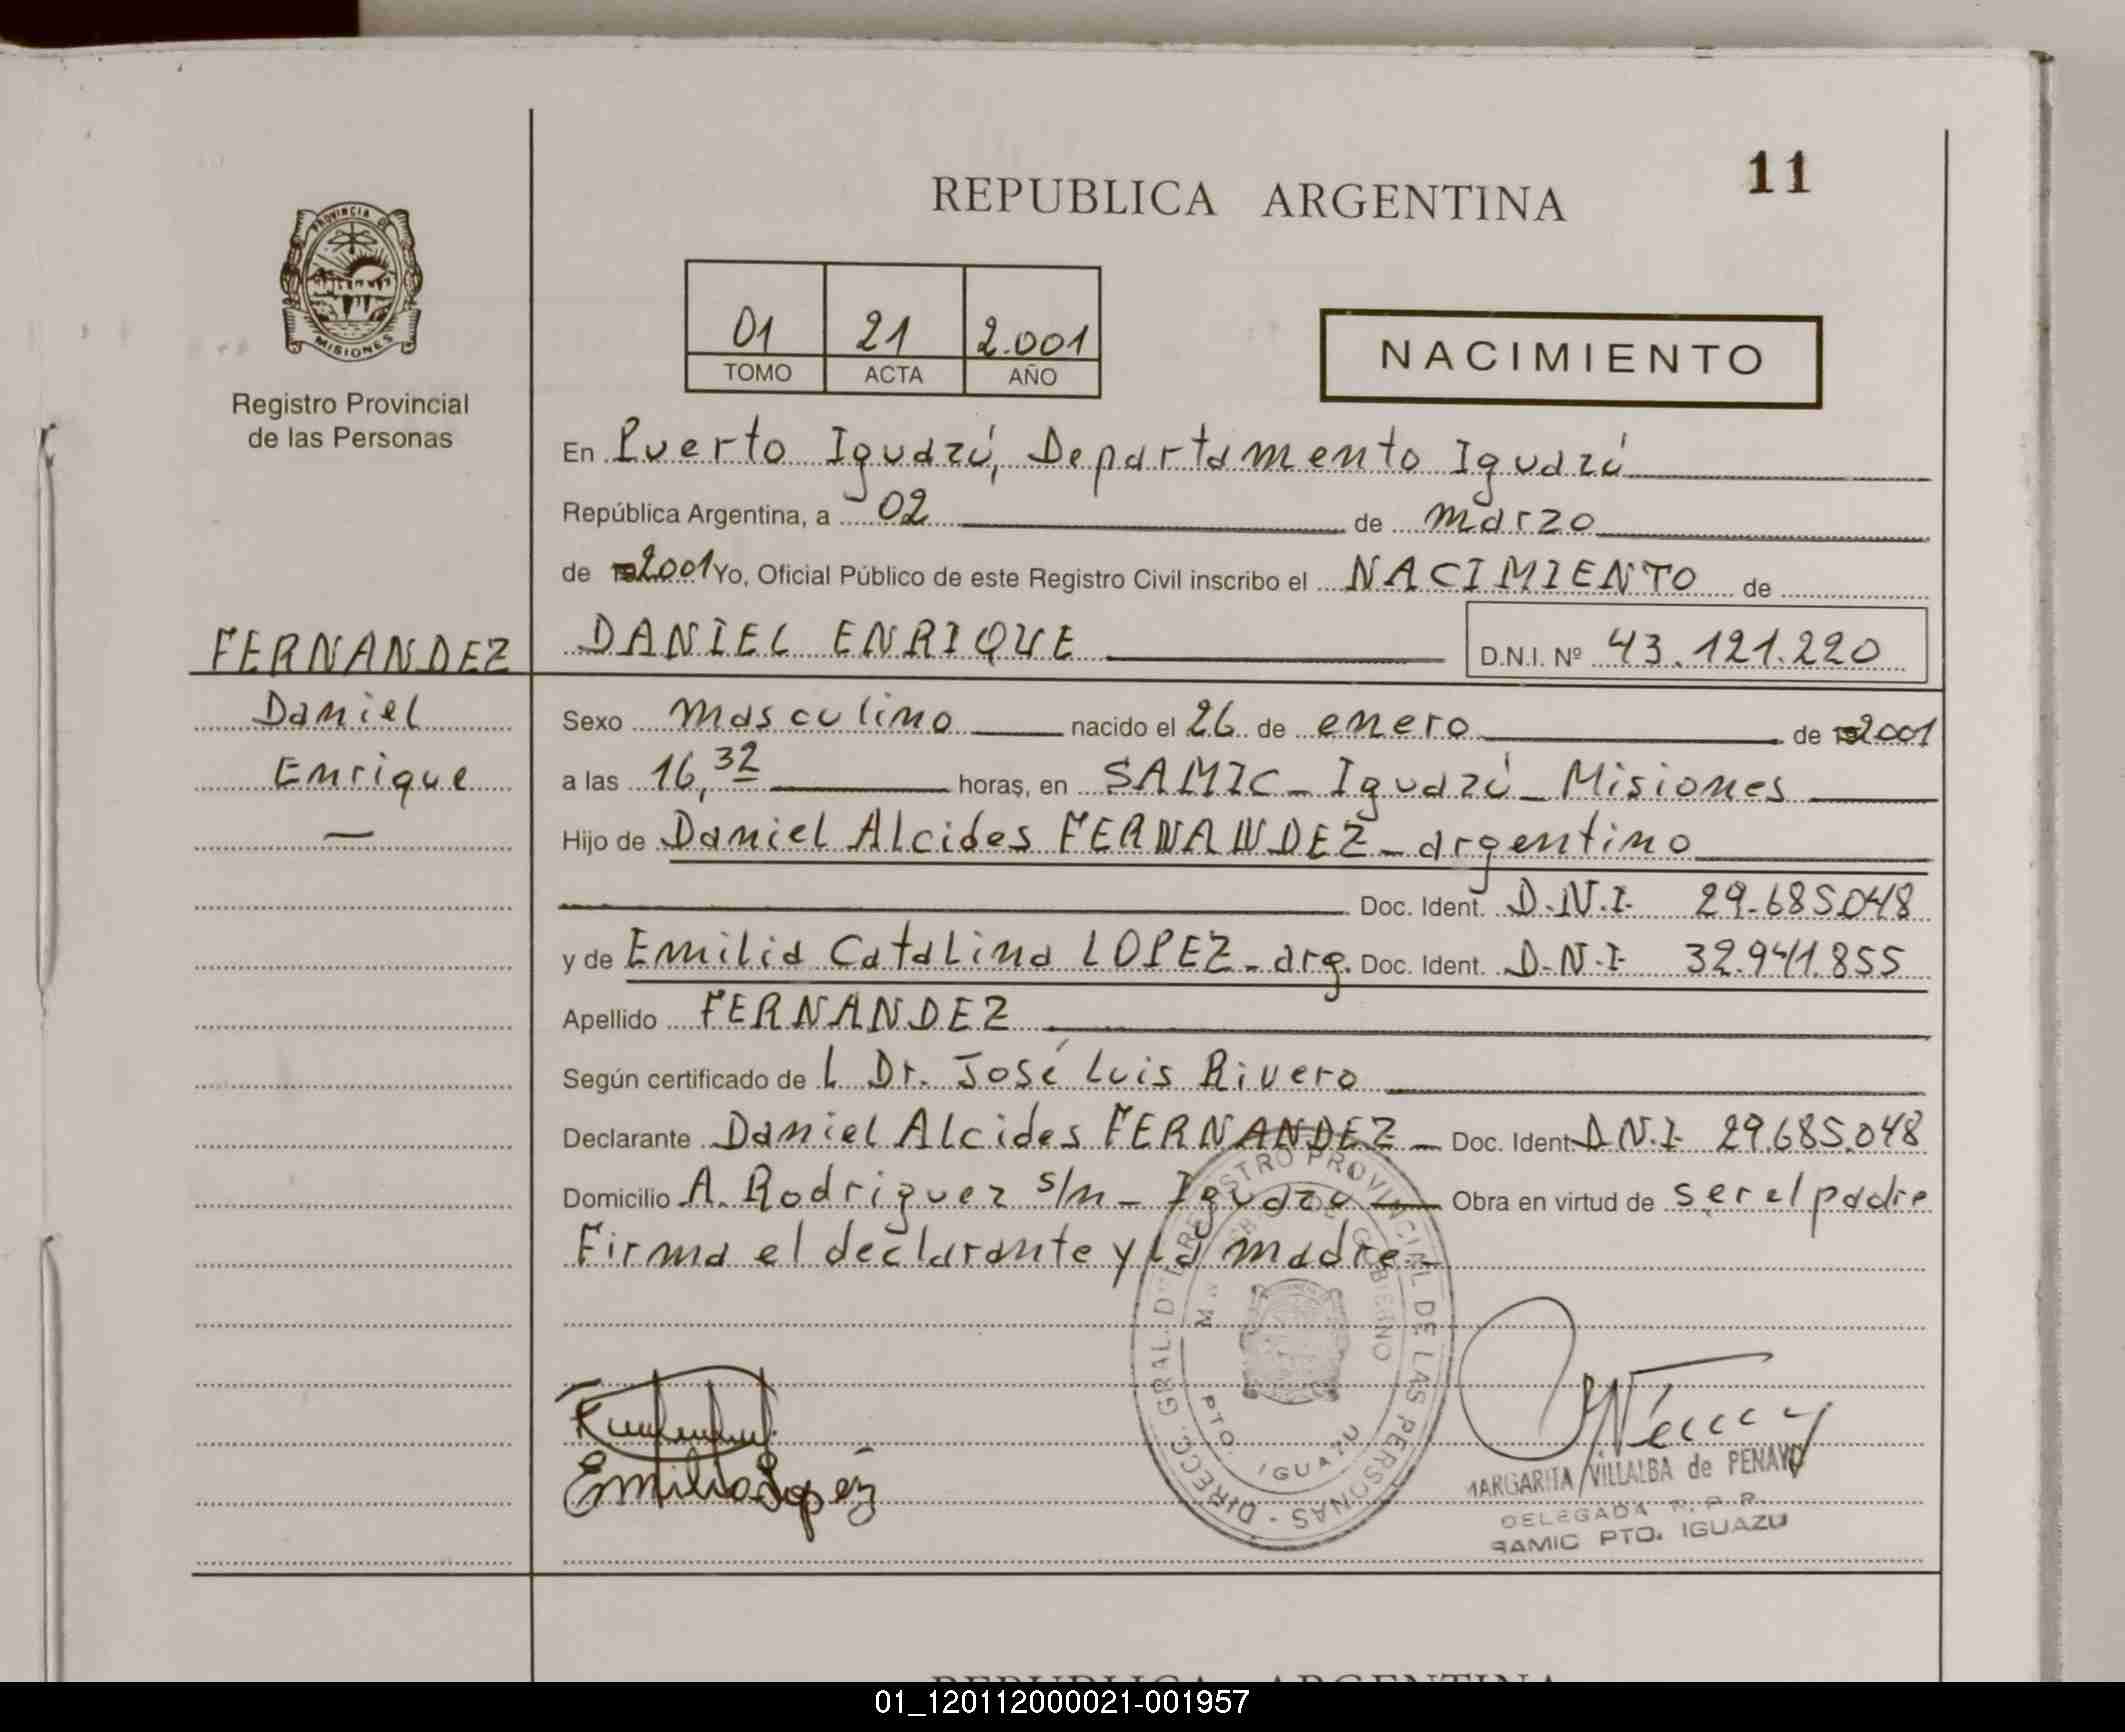 11
REPUBLICA ARGENTINA
PROVINCIA DE
MISIONES
Registro Provincial
de las Personas
01 21 2.001
TOMO ACTA AÑO
NACIMIENTO
En Puerto Iguazú, Departamento Iguazú
República Argentina, a 02 de marzo
de 2001 Yo, Oficial Público de este Registro Civil inscribo el NACIMIENTO de
FERNANDEZ
Daniel
Enrique
DANIEL ENRIQUE D.N.I. Nº 43.121.220
Sexo masculino nacido el 26 de enero de 2001
a las 16,32 horas, en SAMIC - Iguazú - Misiones
Hijo de Daniel Alcides FERNANDEZ - argentino
Doc. Ident. D.N.I. 29.685.048
y de Emilia Catalina LOPEZ - arg. Doc. Ident. D.N.I. 32.941.855
Apellido FERNANDEZ
Según certificado de L Dr. José Luis Rivero
Declarante Daniel Alcides FERNANDEZ - Doc. Ident. D.N.I. 29.685.048
Domicilio A. Rodriguez s/n - Iguazu Obra en virtud de ser el padre
Firma el declarante y la madre.
DIRECC. GRAL. DEL REGISTRO PROVINCIAL DE LAS PERSONAS -
DE GOBIERNO
PTO. IGUAZU
Emilia Lopez
MARGARITA VILLALBA de PENAYO
DELEGADA R.P.P.
SAMIC PTO. IGUAZU
REPUBLICA ARGENTINA
01_120112000021-001957